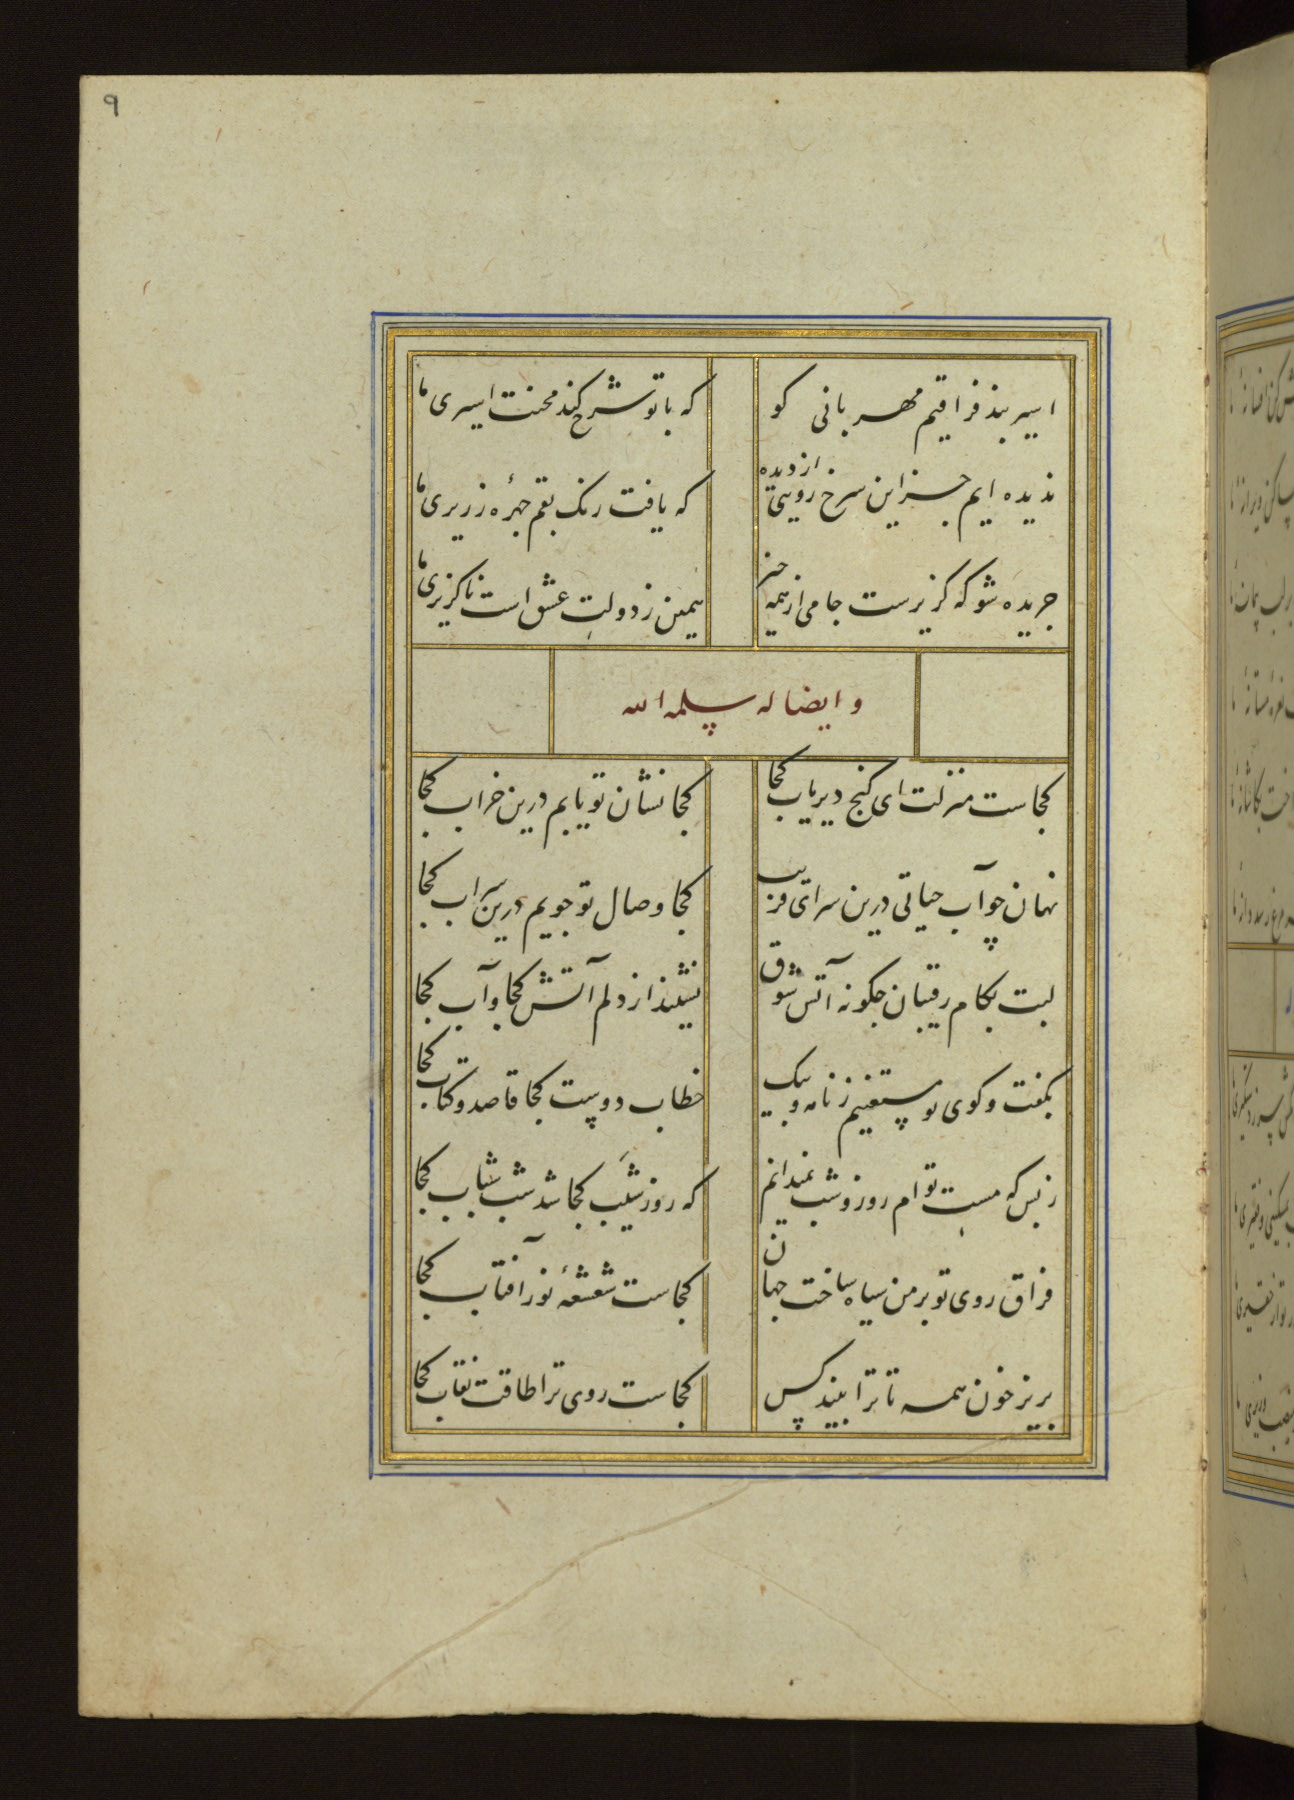 ۹
اسیر بند فراقیم مهربانی کو
که با تو شرح کند محنت اسیری ما
ندیده ایم جز این سرخ رویئی از دیده
که یافت رنک بقم چهرهٔ زریری ما
جریده شو که کزیرست جامی از همه چیز
همین ز دولت عشق است ناکزیری ما
وایضا له سلمه الله
کجاست منزلت ای کنج دیریاب کجا
کجا نشان تو یابم درین خراب کجا
نهان چو آب حیاتی درین سرای فریب
کجا وصال تو جویم درین سراب کجا
لبت بکام رقیبان چکونه آتش شوق
نشیند از دلم آتش کجا و آب کجا
بکفت و کوی تو مستغنیم ز نامه و پیک
خطاب دوست کجا قاصد و کتاب کجا
ز بس که مست توام روز و شب نمیدانم
که روز شیب کجا شد شب شباب کجا
فراق روی تو بر من سیاه ساخت جهان
کجاست شعشعهٔ نور آفتاب کجا
بریز خون همه تا ترا نبیند کس
کجاست روی ترا طاقت نقاب کجا